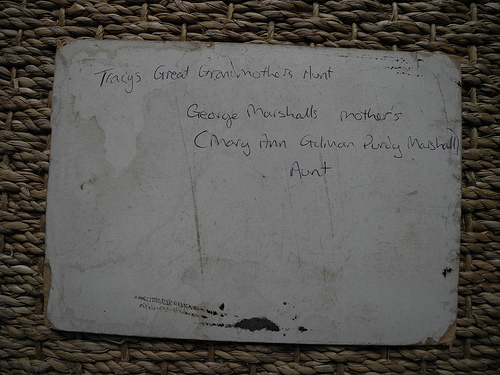 Tracy's Great Grandmothers Aunt
George Marshalls mother's
(Mary Ann Gilman Purdy Marshall)
Aunt